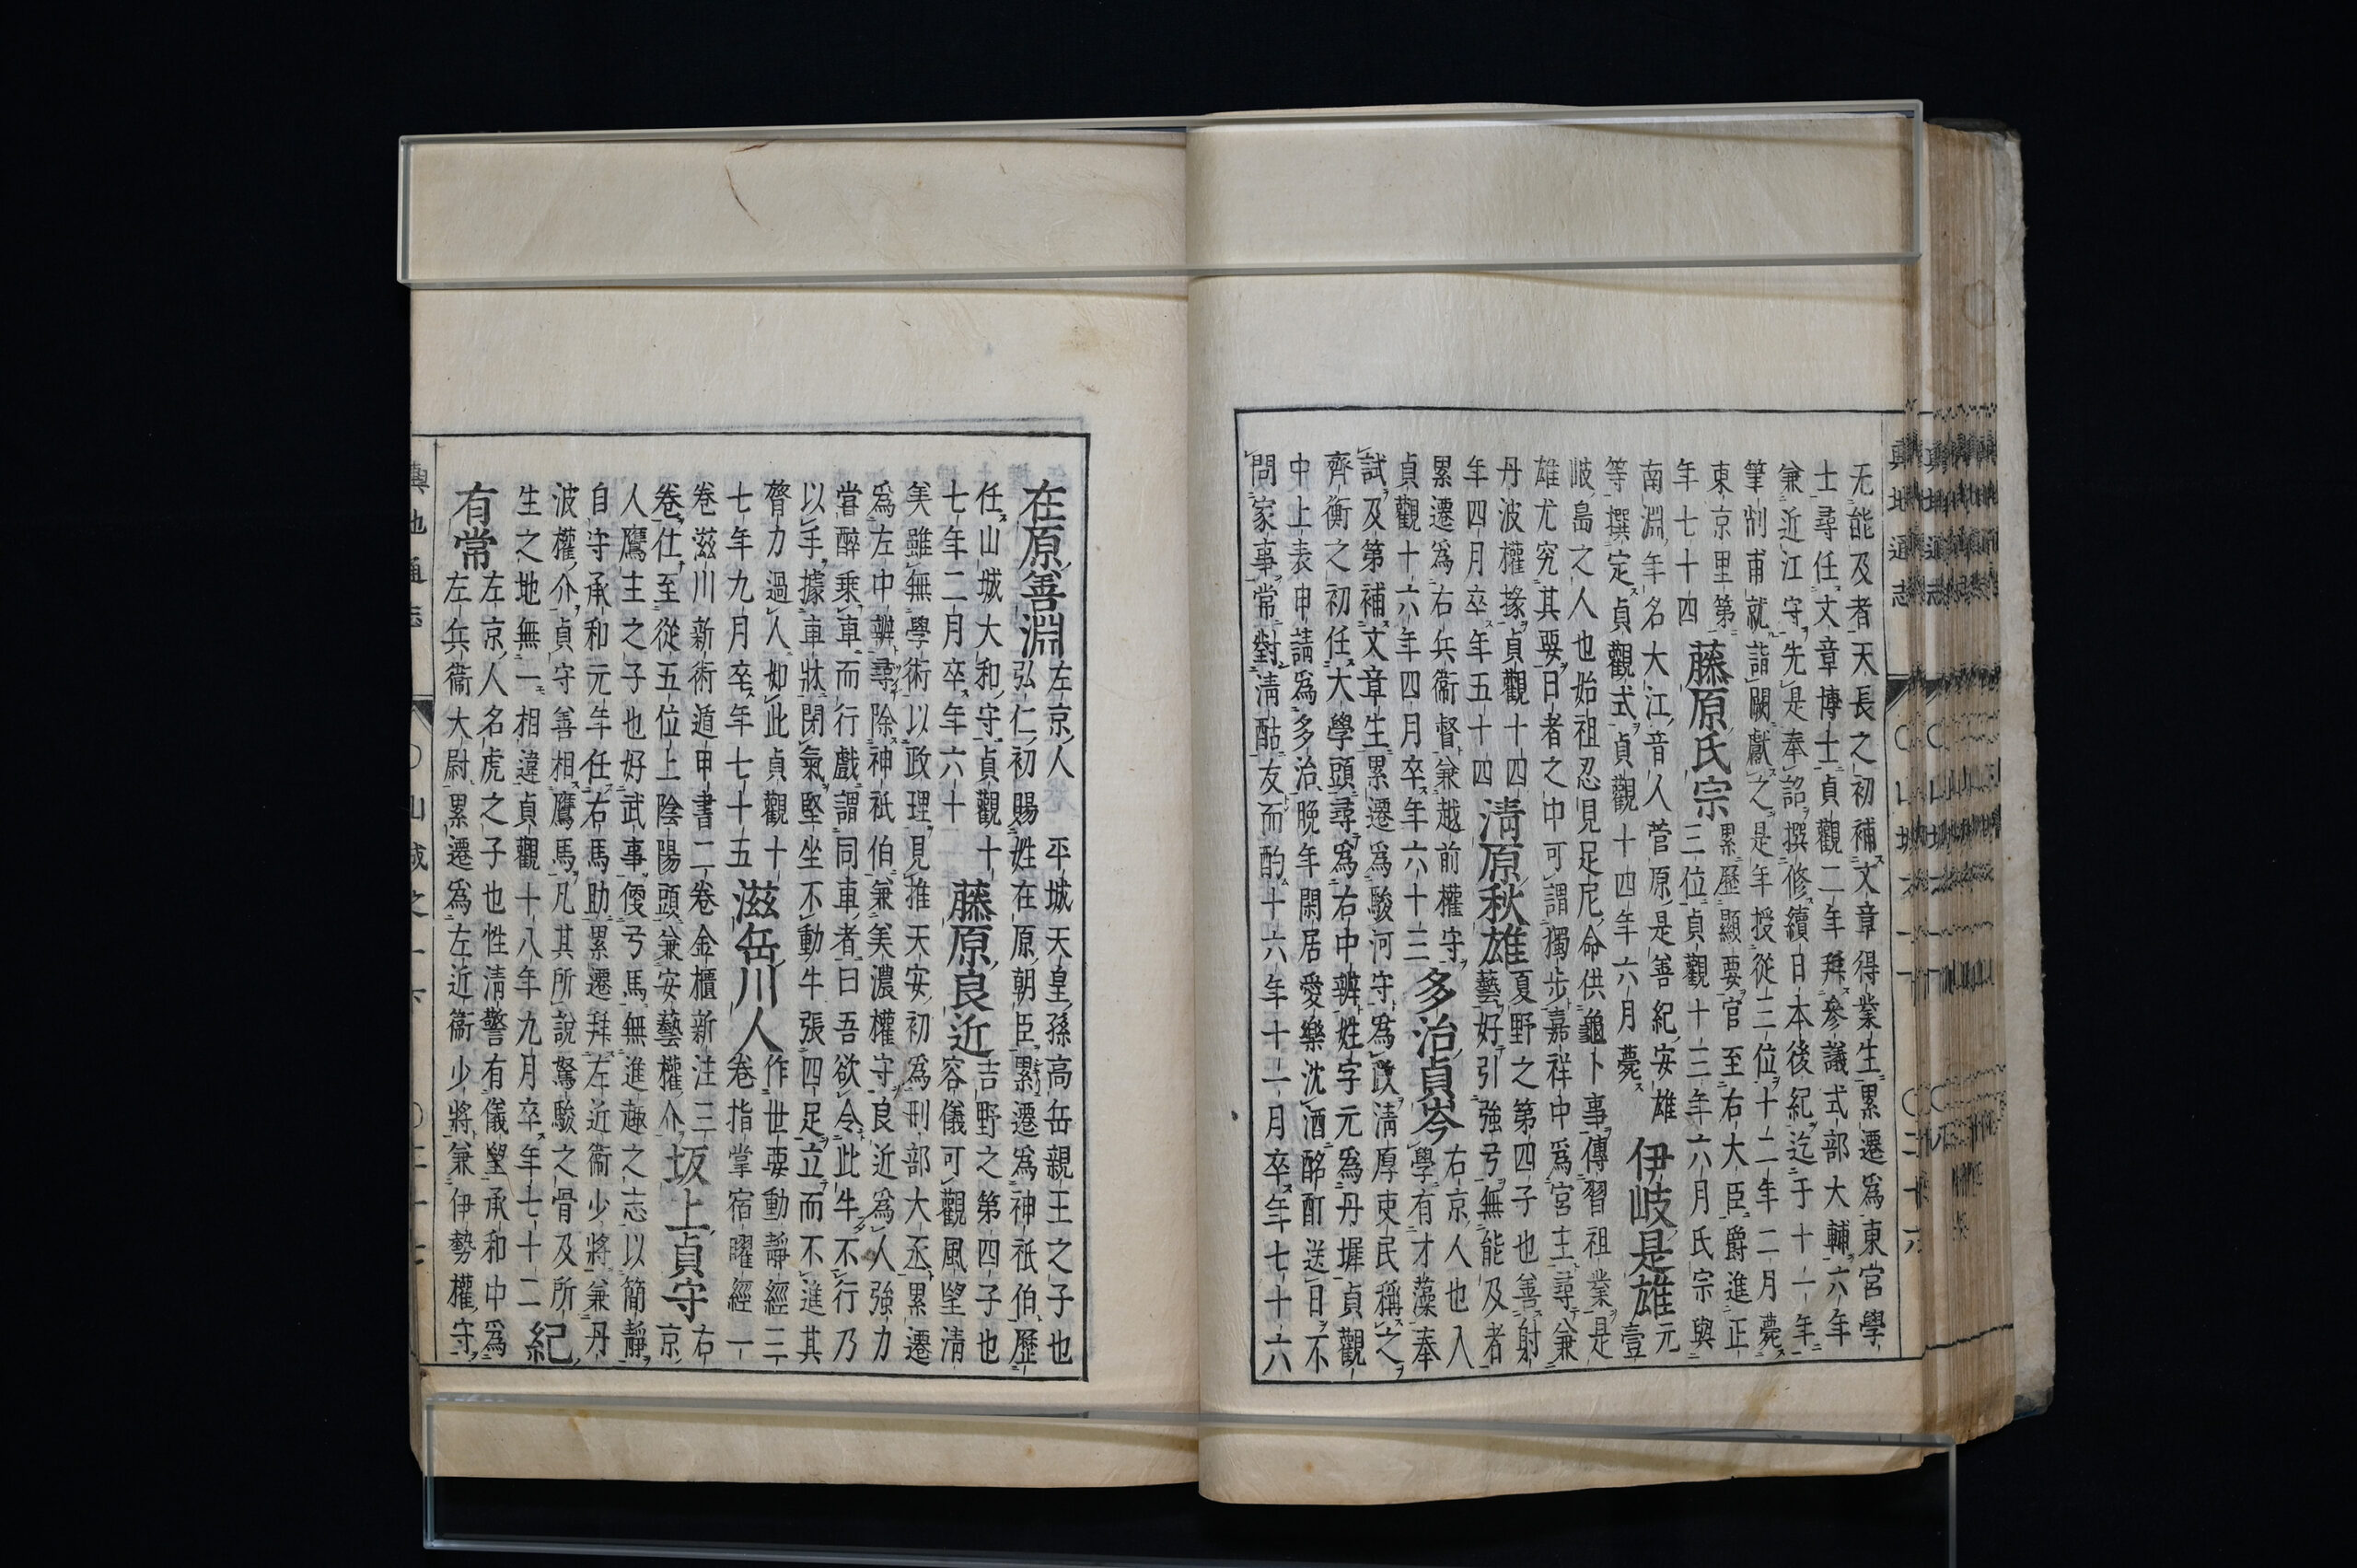 輿地通志
无能及者天長之初補文章得業生累遷爲東宮學
士尋任文章博士貞觀二年拜參議式部大輔六年
兼近江守先是奉詔撰修續日本後紀迄于十一年
筆削甫就詣闕獻之是年授從三位十二年二月薨
東京里第
年七十四
藤原氏宗
累歷顯要官至右大臣爵進正
三位貞觀十三年六月氏宗與
南淵年名大江音人菅原是善紀安雄
等撰定貞觀式貞觀十四年六月薨
伊岐是雄
元
壹
岐島之人也始祖忍見足尼命供龜卜事傳習祖業是
雄尤究其要日者之中可謂獨步嘉祥中爲宮主尋兼
丹波權掾貞觀十四
年四月卒年五十四
清原秋雄
夏野之第四子也善射
藝好引強弓無能及者
累遷爲右兵衞督兼越前權守
貞觀十六年四月卒年六十三
多治貞岑
右京人也入
學有才藻奉
試及第補文章生累遷爲駿河守爲政清厚吏民稱之
齊衡之初任大學頭尋爲右中辨姓字元爲丹墀貞觀
中上表申請爲多治晩年閑居愛樂沈酒酩酊送日不
問家事常對清酤友而酌十六年十一月卒年七十六
在原善淵
左京人 平城天皇孫高岳親王之子也
弘仁初賜姓在原朝臣累遷爲神祇伯歷
任山城大和守貞觀十
七年二月卒年六十
藤原良近
吉野之第四子也
容儀可觀風望清
美雖無學術以政理見推天安初爲刑部大丞累遷
爲左中辨尋除神祇伯兼美濃權守良近爲人強力
甞醉乘車而行戲謂同車者曰吾欲令此牛不行乃
以手據車牀閉氣堅坐不動牛張四足立而不進其
膂力過人如此貞觀十
七年九月卒年七十五
滋岳川人
作世要動靜經三
卷指掌宿曜經一
卷滋川新術遁甲書二卷金櫃新注三
卷仕至從五位上陰陽頭兼安藝權介
坂上貞守
右
京
人鷹主之子也好武事便弓馬無進趣之志以簡靜
自守承和元年任右馬助累遷拜左近衞少將兼丹
波權介貞守善相鷹馬凡其所說駑駿之骨及所
生之地無一相違貞觀十八年九月卒年七十二
紀
有常
左京人名虎之子也性清警有儀望承和中爲
左兵衞大尉累遷爲左近衞少將兼伊勢權守